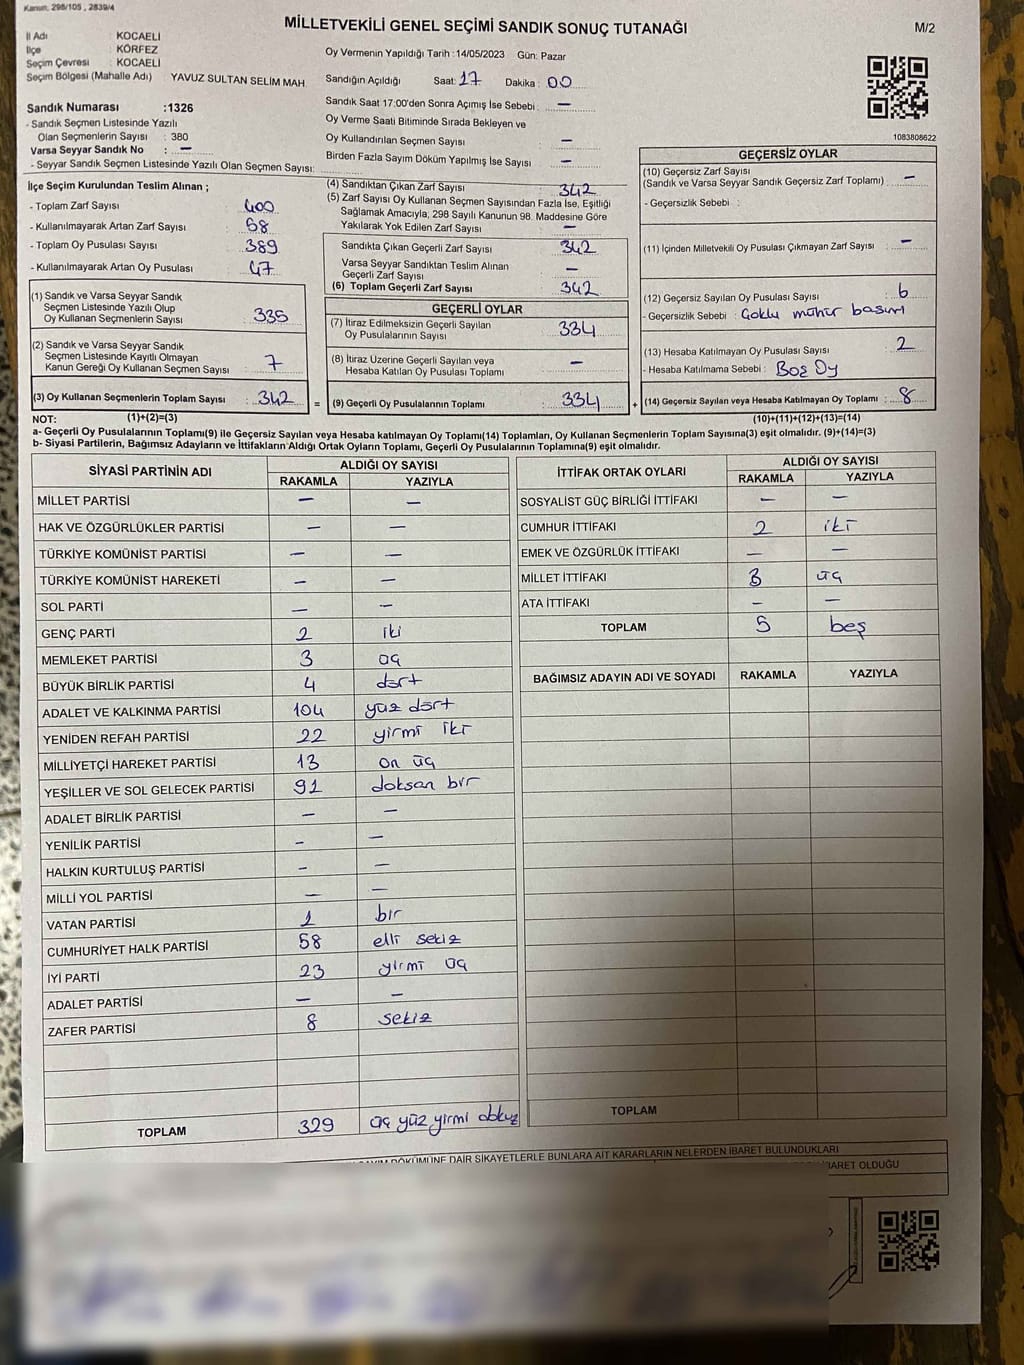 Kanun, 298/105 , 2839/4
MİLLETVEKİLİ GENEL SEÇİMİ SANDIK SONUÇ TUTANAĞI
M/2
İl Adı KOCAELİ
İlçe KÖRFEZ
Seçim Çevresi : KOCAELİ
Seçim Bölgesi (Mahalle Adı) YAVUZ SULTAN SELİM MAH
Sandık Numarası :1326
- Sandık Seçmen Listesinde Yazılı
Olan Seçmenlerin Sayısı : 380
Varsa Seyyar Sandık No : —
- Seyyar Sandık Seçmen Listesinde Yazılı Olan Seçmen Sayısı:
Oy Vermenin Yapıldığı Tarih :14/05/2023 Gün: Pazar
Sandığın Açıldığı Saat: 17 Dakika : 00
Sandık Saat 17:00'den Sonra Açımış İse Sebebi : —
Oy Verme Saati Bitiminde Sırada Bekleyen ve
Oy Kullandırılan Seçmen Sayısı : —
Birden Fazla Sayım Döküm Yapılmış İse Sayısı : —
1083808622
İlçe Seçim Kurulundan Teslim Alınan ;
- Toplam Zarf Sayısı : 400
- Kullanılmayarak Artan Zarf Sayısı : 58
- Toplam Oy Pusulası Sayısı : 389
- Kullanılmayarak Artan Oy Pusulası : 47
(1) Sandık ve Varsa Seyyar Sandık
Seçmen Listesinde Yazılı Olup
Oy Kullanan Seçmenlerin Sayısı : 335
(2) Sandık ve Varsa Seyyar Sandık
Seçmen Listesinde Kayıtlı Olmayan
Kanun Gereği Oy Kullanan Seçmen Sayısı : 7
(3) Oy Kullanan Seçmenlerin Toplam Sayısı : 342
(1)+(2)=(3)
(4) Sandıktan Çıkan Zarf Sayısı : 342
(5) Zarf Sayısı Oy Kullanan Seçmen Sayısından Fazla İse, Eşitliği
Sağlamak Amacıyla, 298 Sayılı Kanunun 98. Maddesine Göre
Yakılarak Yok Edilen Zarf Sayısı : —
Sandıkta Çıkan Geçerli Zarf Sayısı : 342
Varsa Seyyar Sandıktan Teslim Alınan
Geçerli Zarf Sayısı : —
(6) Toplam Geçerli Zarf Sayısı : 342
GEÇERLİ OYLAR
(7) İtiraz Edilmeksizin Geçerli Sayılan
Oy Pusulasının Sayısı : 334
(8) İtiraz Üzerine Geçerli Sayılan veya
Hesaba Katılan Oy Pusulası Toplamı : —
= (9) Geçerli Oy Pusulalarının Toplamı : 334 +
GEÇERSİZ OYLAR
(10) Geçersiz Zarf Sayısı
(Sandık ve Varsa Seyyar Sandık Geçersiz Zarf Toplamı) : —
- Geçersizlik Sebebi :
(11) İçinden Milletvekili Oy Pusulası Çıkmayan Zarf Sayısı : —
(12) Geçersiz Sayılan Oy Pusulası Sayısı : 6
- Geçersizlik Sebebi : Çoklu mühür basımı
(13) Hesaba Katılmayan Oy Pusulası Sayısı : 2
- Hesaba Katılmama Sebebi : Boş Oy
(14) Geçersiz Sayılan veya Hesaba Katılmayan Oy Toplamı : 8
(10)+(11)+(12)+(13)=(14)
NOT:
a- Geçerli Oy Pusulalarının Toplamı(9) ile Geçersiz Sayılan veya Hesaba katılmayan Oy Toplamı(14) Toplamları, Oy Kullanan Seçmenlerin Toplam Sayısına(3) eşit olmalıdır. (9)+(14)=(3)
b- Siyasi Partilerin, Bağımsız Adayların ve İttifakların Aldığı Ortak Oyların Toplamı, Geçerli Oy Pusulalarının Toplamına(9) eşit olmalıdır.
SİYASİ PARTİNİN ADI ALDIĞI OY SAYISI
RAKAMLA YAZIYLA
MİLLET PARTİSİ — —
HAK VE ÖZGÜRLÜKLER PARTİSİ — —
TÜRKİYE KOMÜNİST PARTİSİ — —
TÜRKİYE KOMÜNİST HAREKETİ — —
SOL PARTİ — —
GENÇ PARTİ 2 iki
MEMLEKET PARTİSİ 3 üç
BÜYÜK BİRLİK PARTİSİ 4 dört
ADALET VE KALKINMA PARTİSİ 104 yüz dört
YENİDEN REFAH PARTİSİ 22 yirmi iki
MİLLİYETÇİ HAREKET PARTİSİ 13 on üç
YEŞİLLER VE SOL GELECEK PARTİSİ 91 doksan bir
ADALET BİRLİK PARTİSİ — —
YENİLİK PARTİSİ — —
HALKIN KURTULUŞ PARTİSİ — —
MİLLİ YOL PARTİSİ — —
VATAN PARTİSİ 1 bir
CUMHURİYET HALK PARTİSİ 58 elli sekiz
İYİ PARTİ 23 yirmi üç
ADALET PARTİSİ — —
ZAFER PARTİSİ 8 sekiz
TOPLAM 329 üç yüz yirmi dokuz
İTTİFAK ORTAK OYLARI ALDIĞI OY SAYISI
RAKAMLA YAZIYLA
SOSYALİST GÜÇ BİRLİĞİ İTTİFAKI — —
CUMHUR İTTİFAKI 2 iki
EMEK VE ÖZGÜRLÜK İTTİFAKI — —
MİLLET İTTİFAKI 3 üç
ATA İTTİFAKI — —
TOPLAM 5 beş
BAĞIMSIZ ADAYIN ADI VE SOYADI RAKAMLA YAZIYLA
TOPLAM
DÖKÜMÜNE DAİR ŞİKAYETLERLE BUNLARA AİT KARARLARIN NELERDEN İBARET BULUNDUKLARI
OLDUĞU